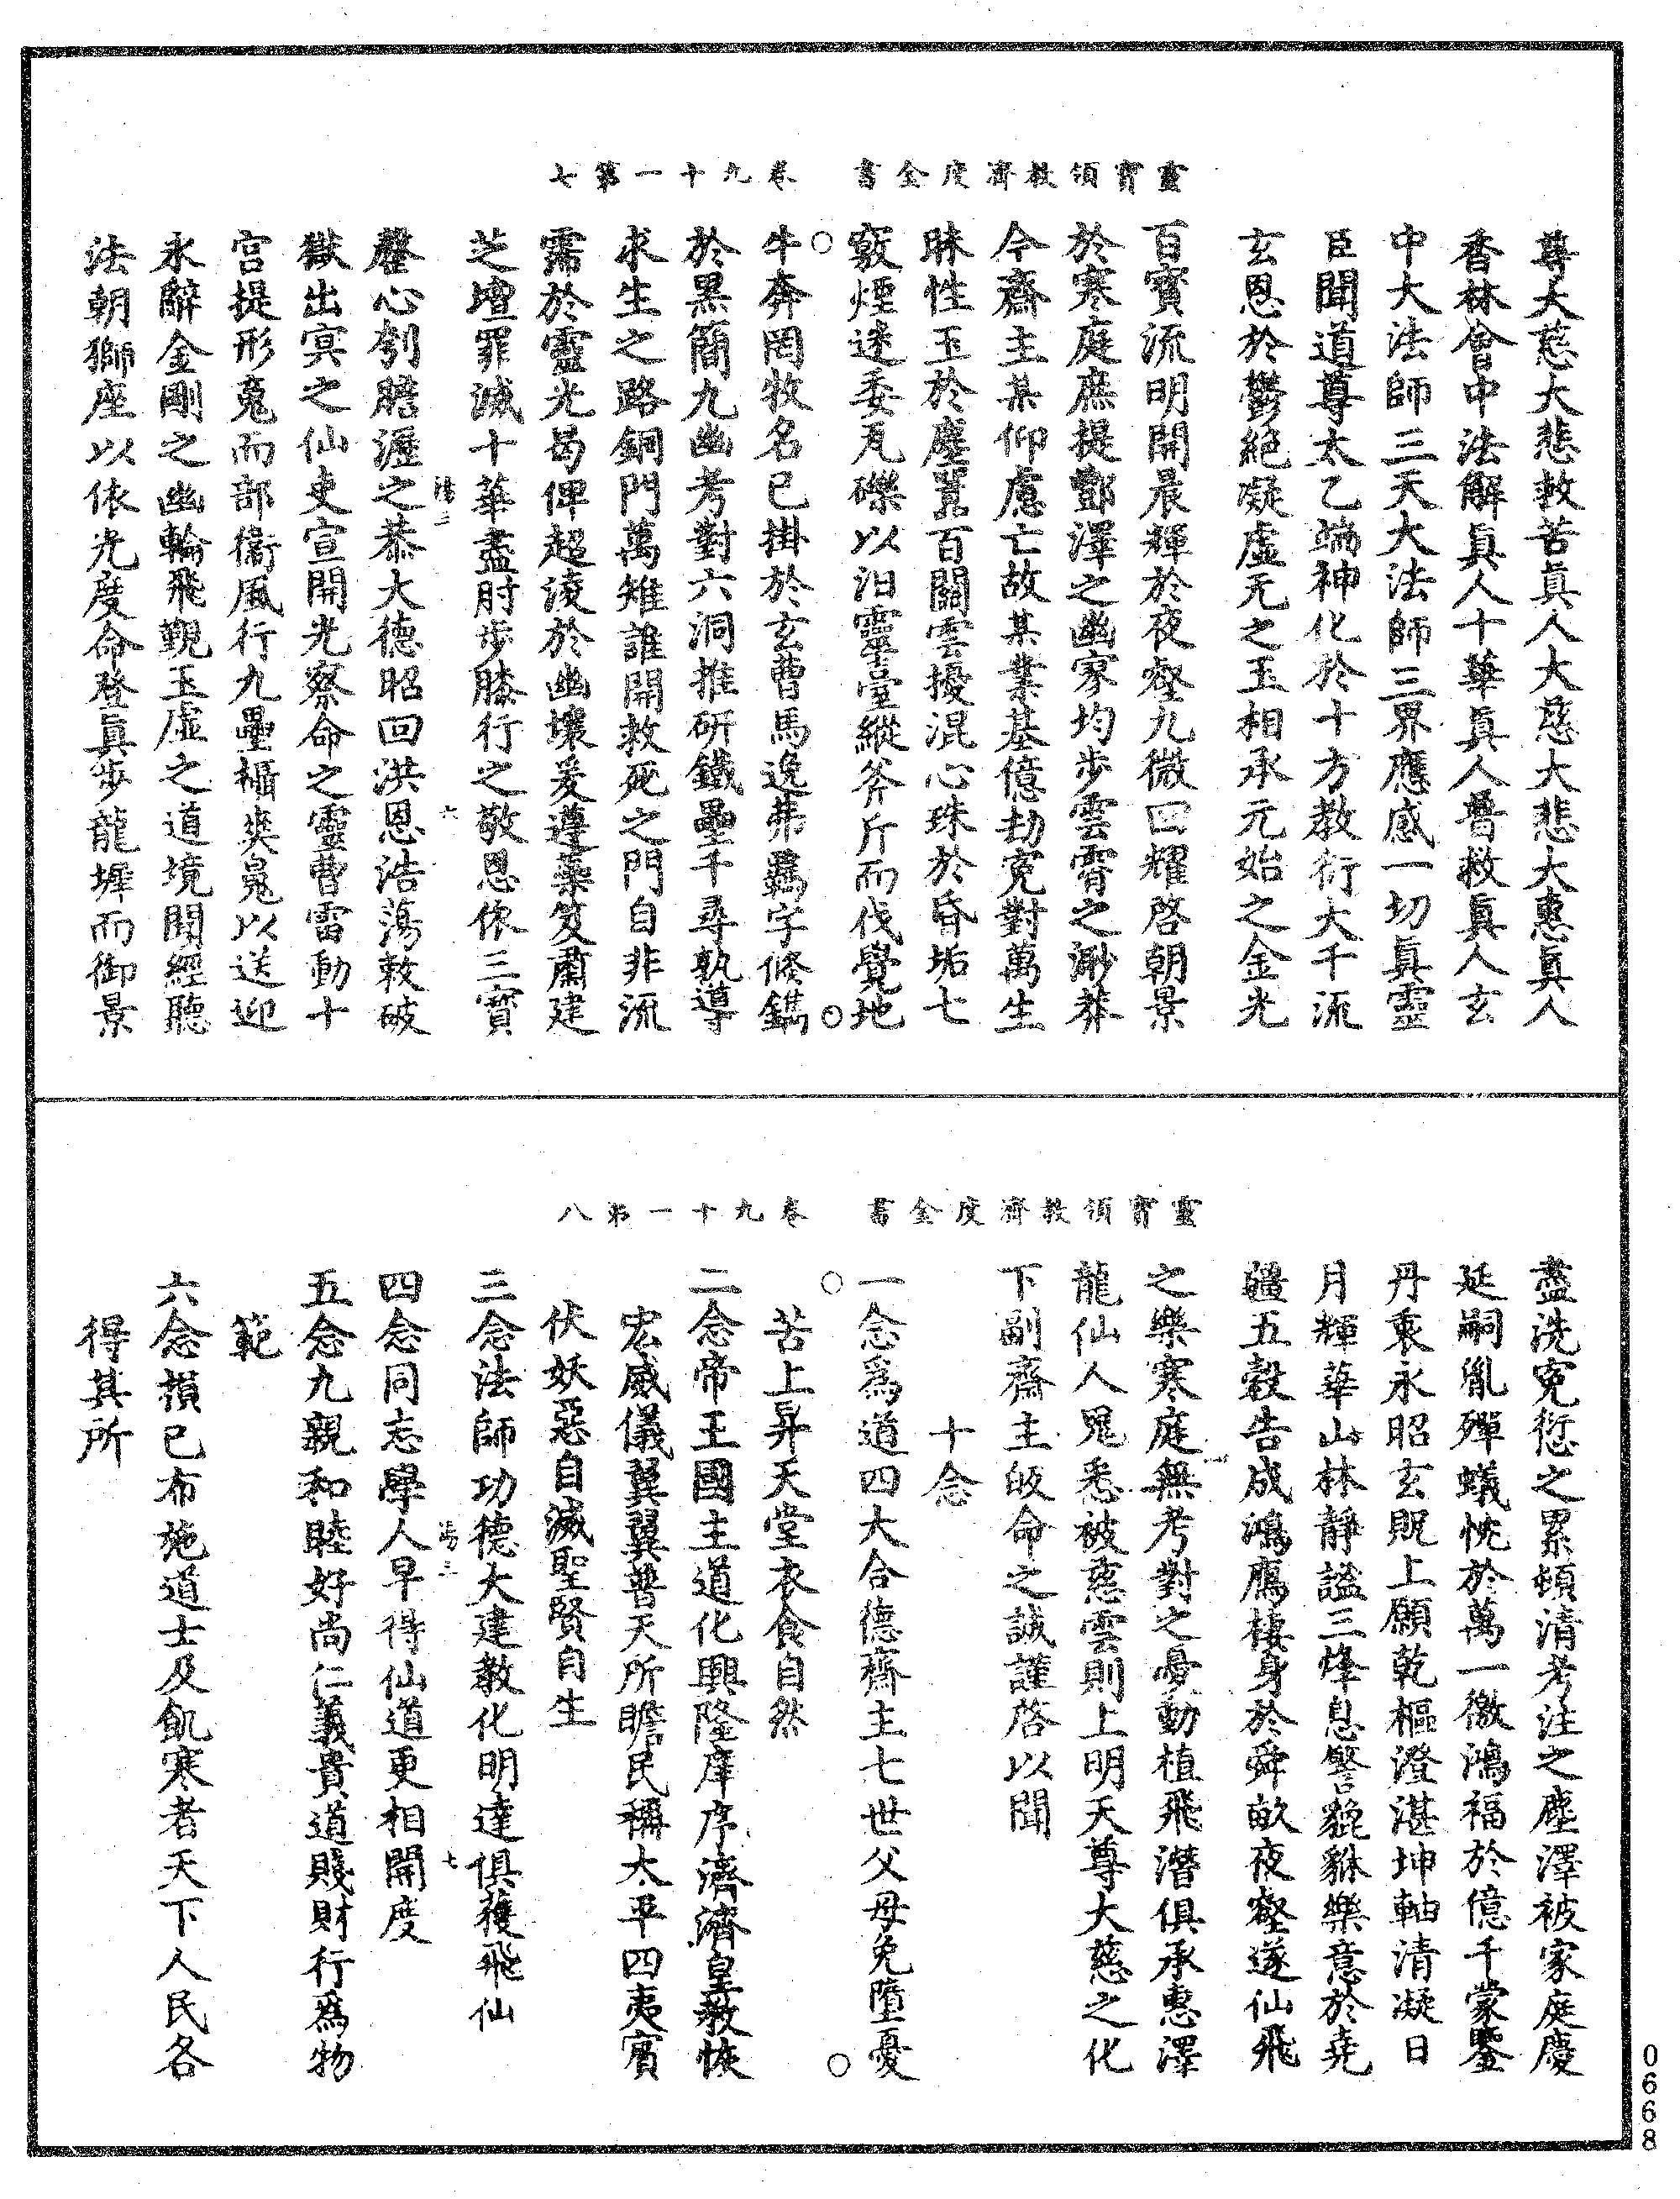 靈寶領教濟度金書　卷九十一第七
尊大慈大悲救苦眞人大慈大悲大惠眞人
香林會中法解眞人十華眞人普救眞人玄
中大法師三天大法師三界應感一切眞靈
臣聞道尊太乙端神化於十方教衍大千流
玄恩於鬱絕凝虛无之玉相承元始之金光
百寶流明開晨輝於夜壑九微回耀啓朝景
於寒庭庶提酆澤之幽家均步雲霄之渺莽
今齋主某仰慮亡故某業基億劫寃對萬生
昧性玉於塵囂百關雲擾混心珠於昏垢七
竅煙迷委瓦礫以汨靈臺縱斧斤而伐覺地
牛奔罔牧名已掛於玄曹馬逸弗羈字條鐫
於黑簡九幽考對六洞推研鐵壘千尋孰導
求生之路銅門萬雉誰開救死之門自非流
霈於靈光曷俾超淩於幽壤爰遵藥笈肅建
芝壇罪滅十華盡肘步膝行之敬恩依三寶
罄心刳膽瀝之恭大德昭回洪恩浩蕩敕破
獄出冥之仙吏宣開光察命之靈曹雷動十
宮提形䰟而部衞風行九壘攝爽鬼以送迎
永辭金剛之幽輪飛覲玉虛之道境聞經聽
法朝獅座以依光度命登眞步龍墀而御景
六
靈寶領教濟度金書　卷九十一第八
盡洗寃愆之累頓清考注之塵澤被家庭慶
延嗣胤殫蟻忱於萬一徼鴻福於億千蒙鑒
丹衷永昭玄貺上願乾樞澄湛坤軸清凝日
月輝華山林靜謐三烽息警貔貅樂意於堯
疆五穀告成鴻鴈棲身於舜畝夜壑遂仙飛
之樂寒庭無考對之憂動植飛潛俱承惠澤
龍仙人鬼悉被慈雲則上明天尊大慈之化
下副齋主皈命之誠謹啓以聞
十念
一念爲道四大合德齋主七世父母免墮憂
苦上昇天堂衣食自然
二念帝王國主道化興隆庠序濟濟皇教恢
宏威儀翼翼普天所瞻民稱太平四夷賓
伏妖惡自滅聖賢自生
三念法師功德大建教化明達俱獲飛仙
四念同志學人早得仙道更相開度
五念九親和睦好尚仁義貴道賤財行爲物
範
六念損己布施道士及飢寒者天下人民各
得其所
七
0668